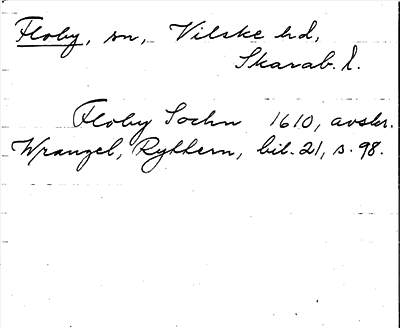 Floby, sn, Vilske hd,
Skarab. l.
Floby Sochn 1610, avskr.
Wrangel, Rykhern, bil. 21, s. 98.